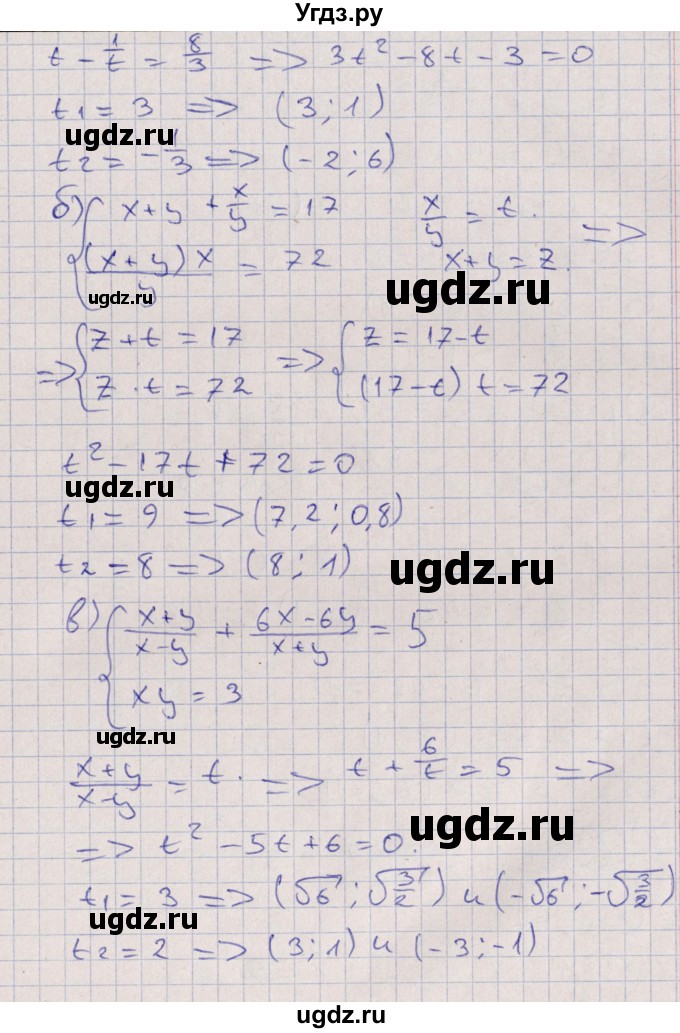 Угдз.ру
t - 1/t = 8/3 => 3t² - 8t - 3 = 0
t1 = 3 => (3; 1)
ugdz.ru
t2 = -1/3 => (-2; 6)
б) { x+y + x/y = 17    x/y = t. =>
(x+y)x/y = 72    x+y = z.
ugdz.ru
ugdz.ru
=> { z+t = 17 => { z = 17-t
z·t = 72    (17-t)t = 72
t² - 17t + 72 = 0
ugdz.ru
t1 = 9 => (7,2; 0,8)
t2 = 8 => (8; 1)
ugdz.ru
в) { x+y/x-y + 6x-6y/x+y = 5
xy = 3
ugdz.ru
x+y/x-y = t. => t + 6/t = 5 =>
=> t² - 5t + 6 = 0.
ugdz.ru
t1 = 3 => (√6; √3/2) и (-√6; -√3/2)
ugdz.ru
t2 = 2 => (3; 1) и (-3; -1)
ugdz.ru